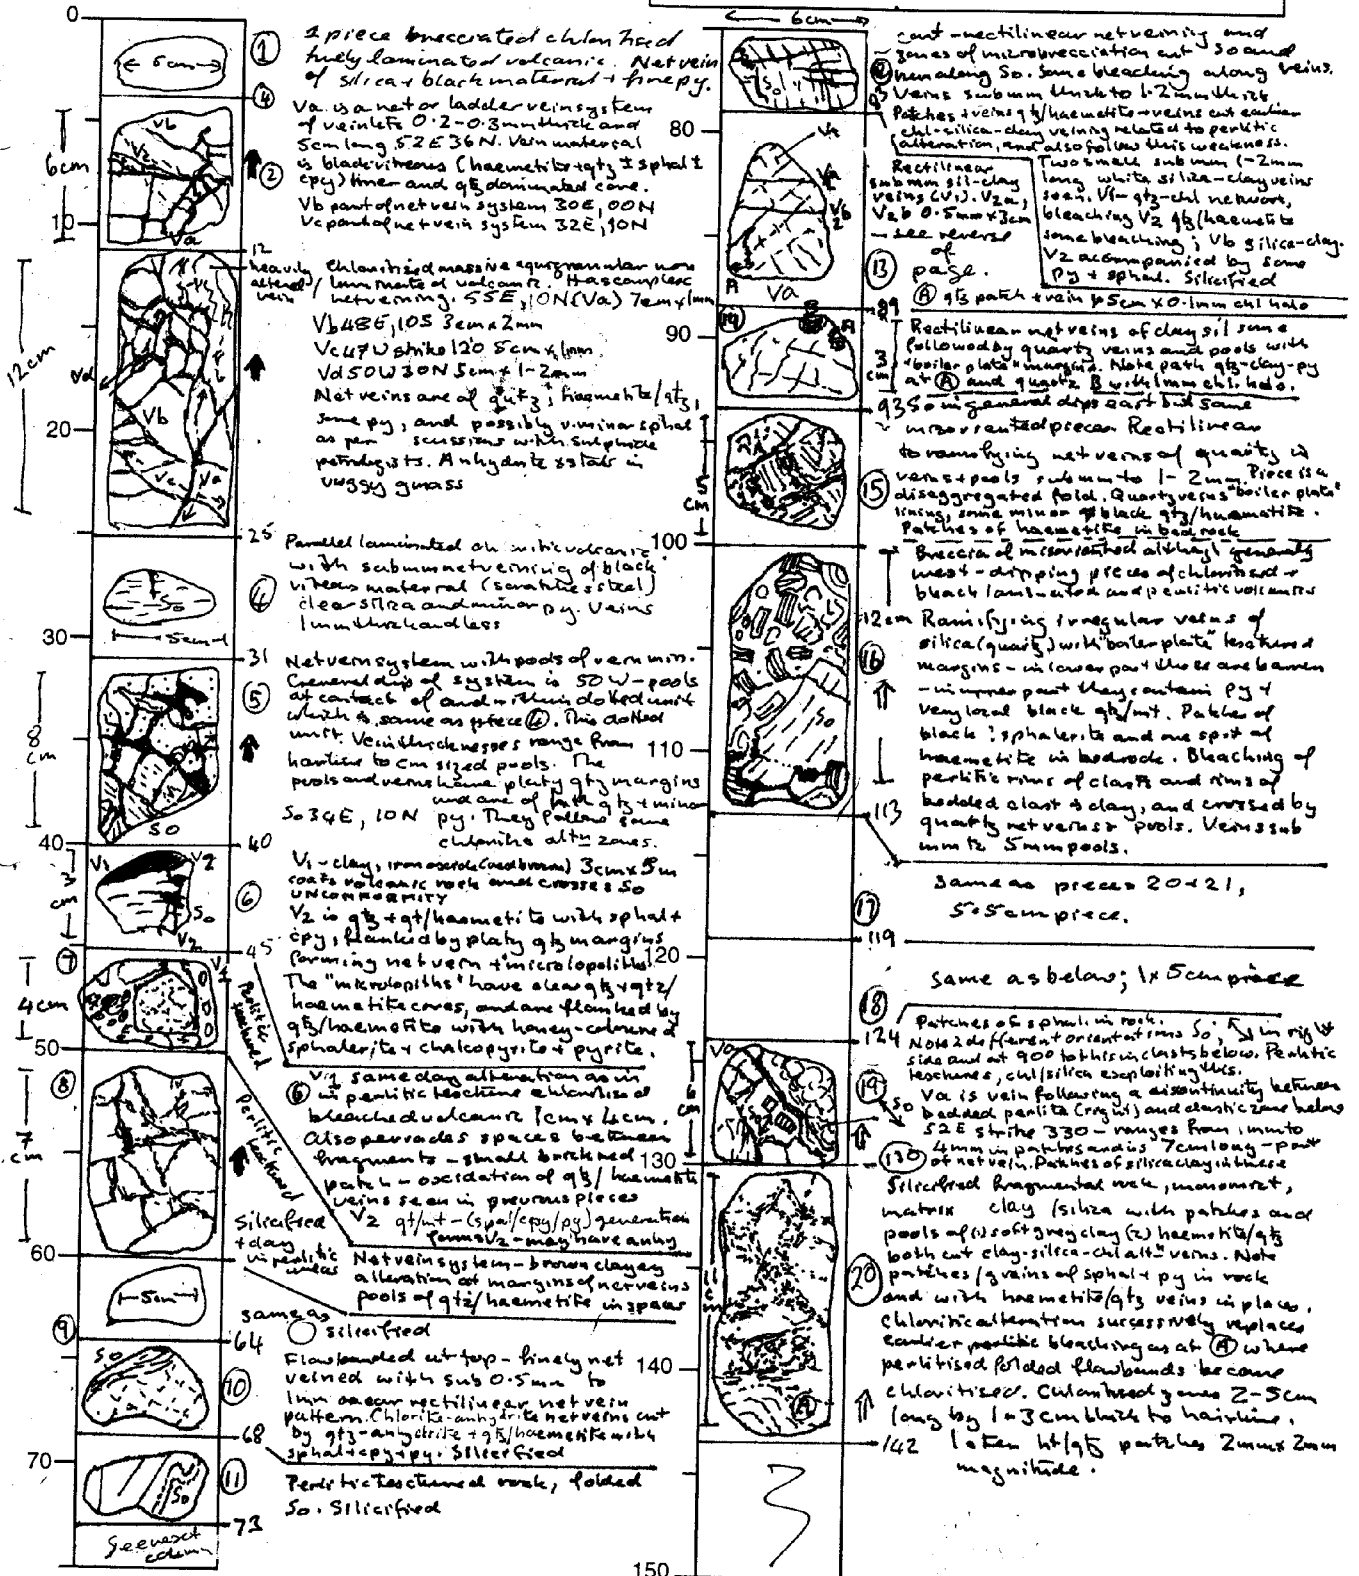 0
5cm
1
1 piece brecciated chloritized
finely laminated volcanic. Net vein
of silica + black material + fine py.
4
Va is a net or ladder vein system
of veinlets 0.2-0.3mm thick and
5cm long 52E 36N. Vein material
is black vitreous (haematite+qtz ± sphal ±
cpy) liner and qtz dominated core.
Vb part of net vein system 30E, 00N
Vc part of net vein system 32E, 10N
2
6cm
Vb
Va
10
12
heavily
altered
vein
chloritized massive equigranular non
laminated volcanic. Has complex
net veining. 55E, 10N (Va) 7cm x 1mm
Vb 48E, 10S 3cm x 2mm
Vc 47W strike 120 5cm x 1mm
Vd 50W 30N 5cm x 1-2mm
Net veins are of qtz, haematite/qtz,
some py, and possibly v. minor sphal
as per discussions with sulphide
petrologists. Anhydrite xstals in
vuggy mass
12cm
Vd
Vb
Vc
Va
20
25
Parallel laminated volcanic
with submm net veining of black
vitreous material (scratches steel)
clear silica and minor py. Veins
1mm thick and less
4
So
5cm
30
31
Net vein system with pods of vein min.
General dip of system is 50W - pools
at contact of and within dotted unit
which is same as piece 4. This dotted
unit. Vein thicknesses range from
hairline to cm sized pools. The
pools and veins have platy qtz margins
and are of both qtz + minor
So 34E, 10N py. They follow some
chloritic altn zones.
5
8
cm
So
40
40
V1 - clay, iron oxide (red brown) 3cm x 5m
coats volcanic rock and crosses So
UNCONFORMITY
V2 is qtz + qt/haematite with sphal +
cpy, flanked by platy qtz margins
forming net vein + "microlopoliths"
The "microlopoliths" have clear qtz + qtz/
haematite cores, and are flanked by
qtz/haematite with honey-coloured
sphalerite + chalcopyrite + pyrite.
V1
V2
So
V2
3
cm
6
45
7
4cm
Perlitic
textured
50
same clay alteration as in
6 in perlitic texture chloritised
bleached volcanic 1cm x 4cm.
Also pervades spaces between
fragments - small
patch - oxidation of qtz/haematite
veins seen in previous pieces
V2 qt/mt - (spal/cpy/py) generation
forms V2 - may have anhy
8
7
cm
Perlitic
textured
Silicified
+ clay
in perlitic
areas
Net vein system - brown clayey
alteration at margins of net veins
pools of qtz/haematite in spaces
60
5cm
same as
silicified
9
64
Flow banded at top - finely net
veined with sub 0.5mm to
1mm rectilinear net vein
pattern. Chlorite-anhydrite net veins cut
by qtz-anhydrite + qtz/haematite with
sphal+cpy+py. Silicified
So
10
68
70
Perlitic textured rock, folded
So. Silicified
11
So
73
See next
column
6cm
cont - rectilinear net veining and
zones of microbrecciation cut So and
run along So. Some bleaching along veins.
Veins submm thick to 1-2mm thick
So
Patches + veins qtz/haematite + veins cut earlier
chl-silica-clay veining related to perlitic
alteration, and also follow this weakness.
80
Rectilinear
submm sil-clay
veins (V1). V2a,
V2b 0.5mm x 3cm
- see reverse
of
page.
Two small submm 1-2mm
long white silica-clay veins
seen. V1 - qtz-chl network,
bleaching V2 qtz/haematite
some bleaching; Vb silica-clay.
V2 accompanied by some
py + sphal. Silicified
V1
A
Va
13
A qtz patch + vein 5cm x 0.1mm chl halo
89
90
14
A
3
cm
Rectilinear net veins of clay sil some
followed by quartz veins and pools with
"boiler plate" margins. Note patch qtz-clay-py
at A and quartz B with 1mm chl. halo.
93
So in general dips east but some
misoriented pieces. Rectilinear
to ramifying net veins of quartz in
veins + pools submm to 1-2mm. Piece is a
disaggregated fold. Quartz veins "boiler plate"
lining, some minor black qtz/haematite.
Patches of haematite in bedrock
15
5
cm
100
Breccia of misoriented although generally
west-dipping pieces of chloritised +
black laminated and perlitic volcanics
12cm
Ramifying irregular veins of
silica (quartz) with "boiler plate" textured
margins - in lower part these are barren
- in upper part they contain py +
very local black qtz/mt. Patches of
black ?sphalerite and one spot of
haematite in bedrock. Bleaching of
perlitic rims of clasts and rims of
bedded clast is clay, and crossed by
quartz net veins + pools. Veins sub
mm to 5mm pools.
16
So
110
113
Same as pieces 20+21,
5.5cm piece.
17
119
120
same as below; 1 x 5cm piece
18
124
Patches of sphal. in rock.
Note 2 different orientations So, in right
side and at 900 to this in clasts below. Perlitic
textures, chl/silica exploiting this.
Va is vein following a discontinuity between
bedded perlite (right) and clastic zone below
52E strike 330 - ranges from 1mm to
4mm in patches and is 7cm long - part
of net vein. Patches of silica clay in these
Va
6
cm
19
So
130
130
Silicified fragmental rock, monomict,
matrix clay/silica with patches and
pools of (1) soft grey clay (2) haematite/qtz
both cut clay-silica-chl altn veins. Note
patches/grains of sphal + py in rock
and with haematite/qtz veins in places.
Chloritic alteration successively replaces
earlier perlitic bleaching as at A where
perlitised folded flowbands become
chloritised. Chloritised zones 2-5cm
long by 1-3cm thick to hairline.
later ht/qtz patches 2mm x 2mm
magnitude.
20
11
cm
140
A
142
150